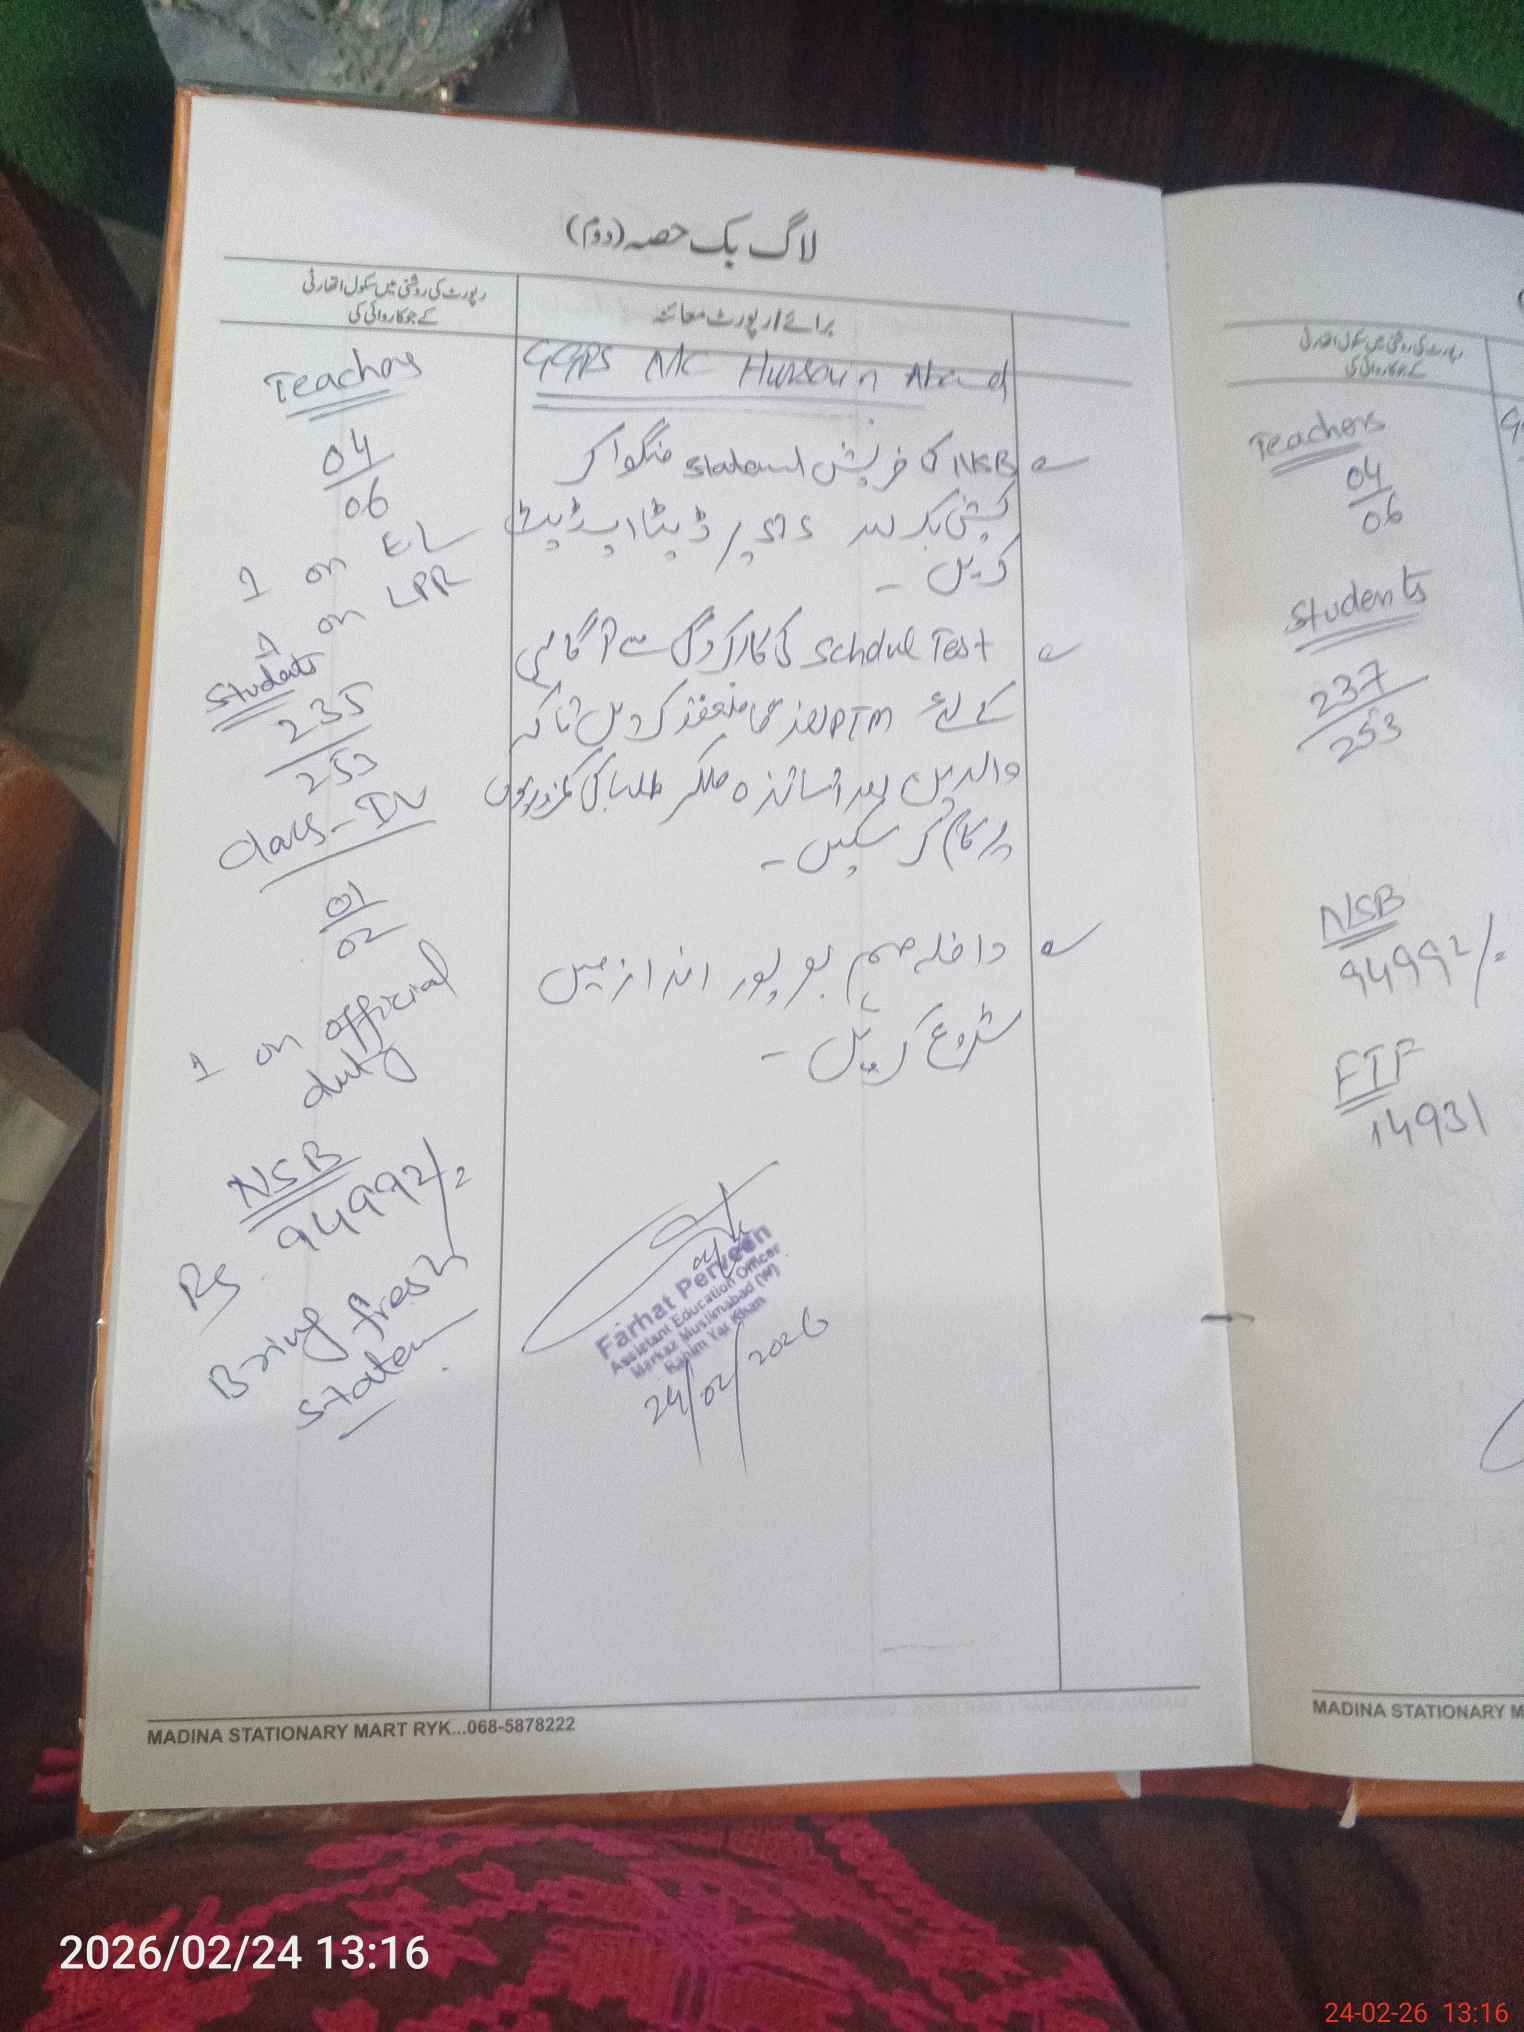 لاگ بک حصہ (دوم)
رپورٹ کی روشنی میں سکول اتھارٹی
کے جو کاروائی کی
برائے / رپورٹ معائنہ
GGPS M/C Hussain Abad
NSB کا فریش statement منگوا کر
کیش بک اور SIS پر ڈیٹا اپڈیٹ
کریں ۔
School Test کی کارکردگی سے آگاہی
کے لئے PTM کا منعقد کریں تاکہ
والدین اور اساتذہ ملکر طلبا کی کمزوریوں
پر کام کر سکیں ۔
داخلہ مہم بھرپور انداز میں
شروع کریں ۔
Teachers
04
06
1 on EL
1 on LPR
Students
235
253
Class-IV
01
02
1 on official
duty
NSB
Rs 94992/=
Bring fresh
statem
Farhat Perveen
Assistant Education Officer
Markaz Muslimabad (W)
Rahim Yar Khan
24/02/2026
MADINA STATIONARY MART RYK...068-5878222
رپورٹ کی روشنی میں سکول اتھارٹی
کے جو کاروائی کی
Teachers
04
06
Students
237
253
NSB
94992/=
FTF
14931
MADINA STATIONARY M
2026/02/24 13:16
24-02-26 13:16